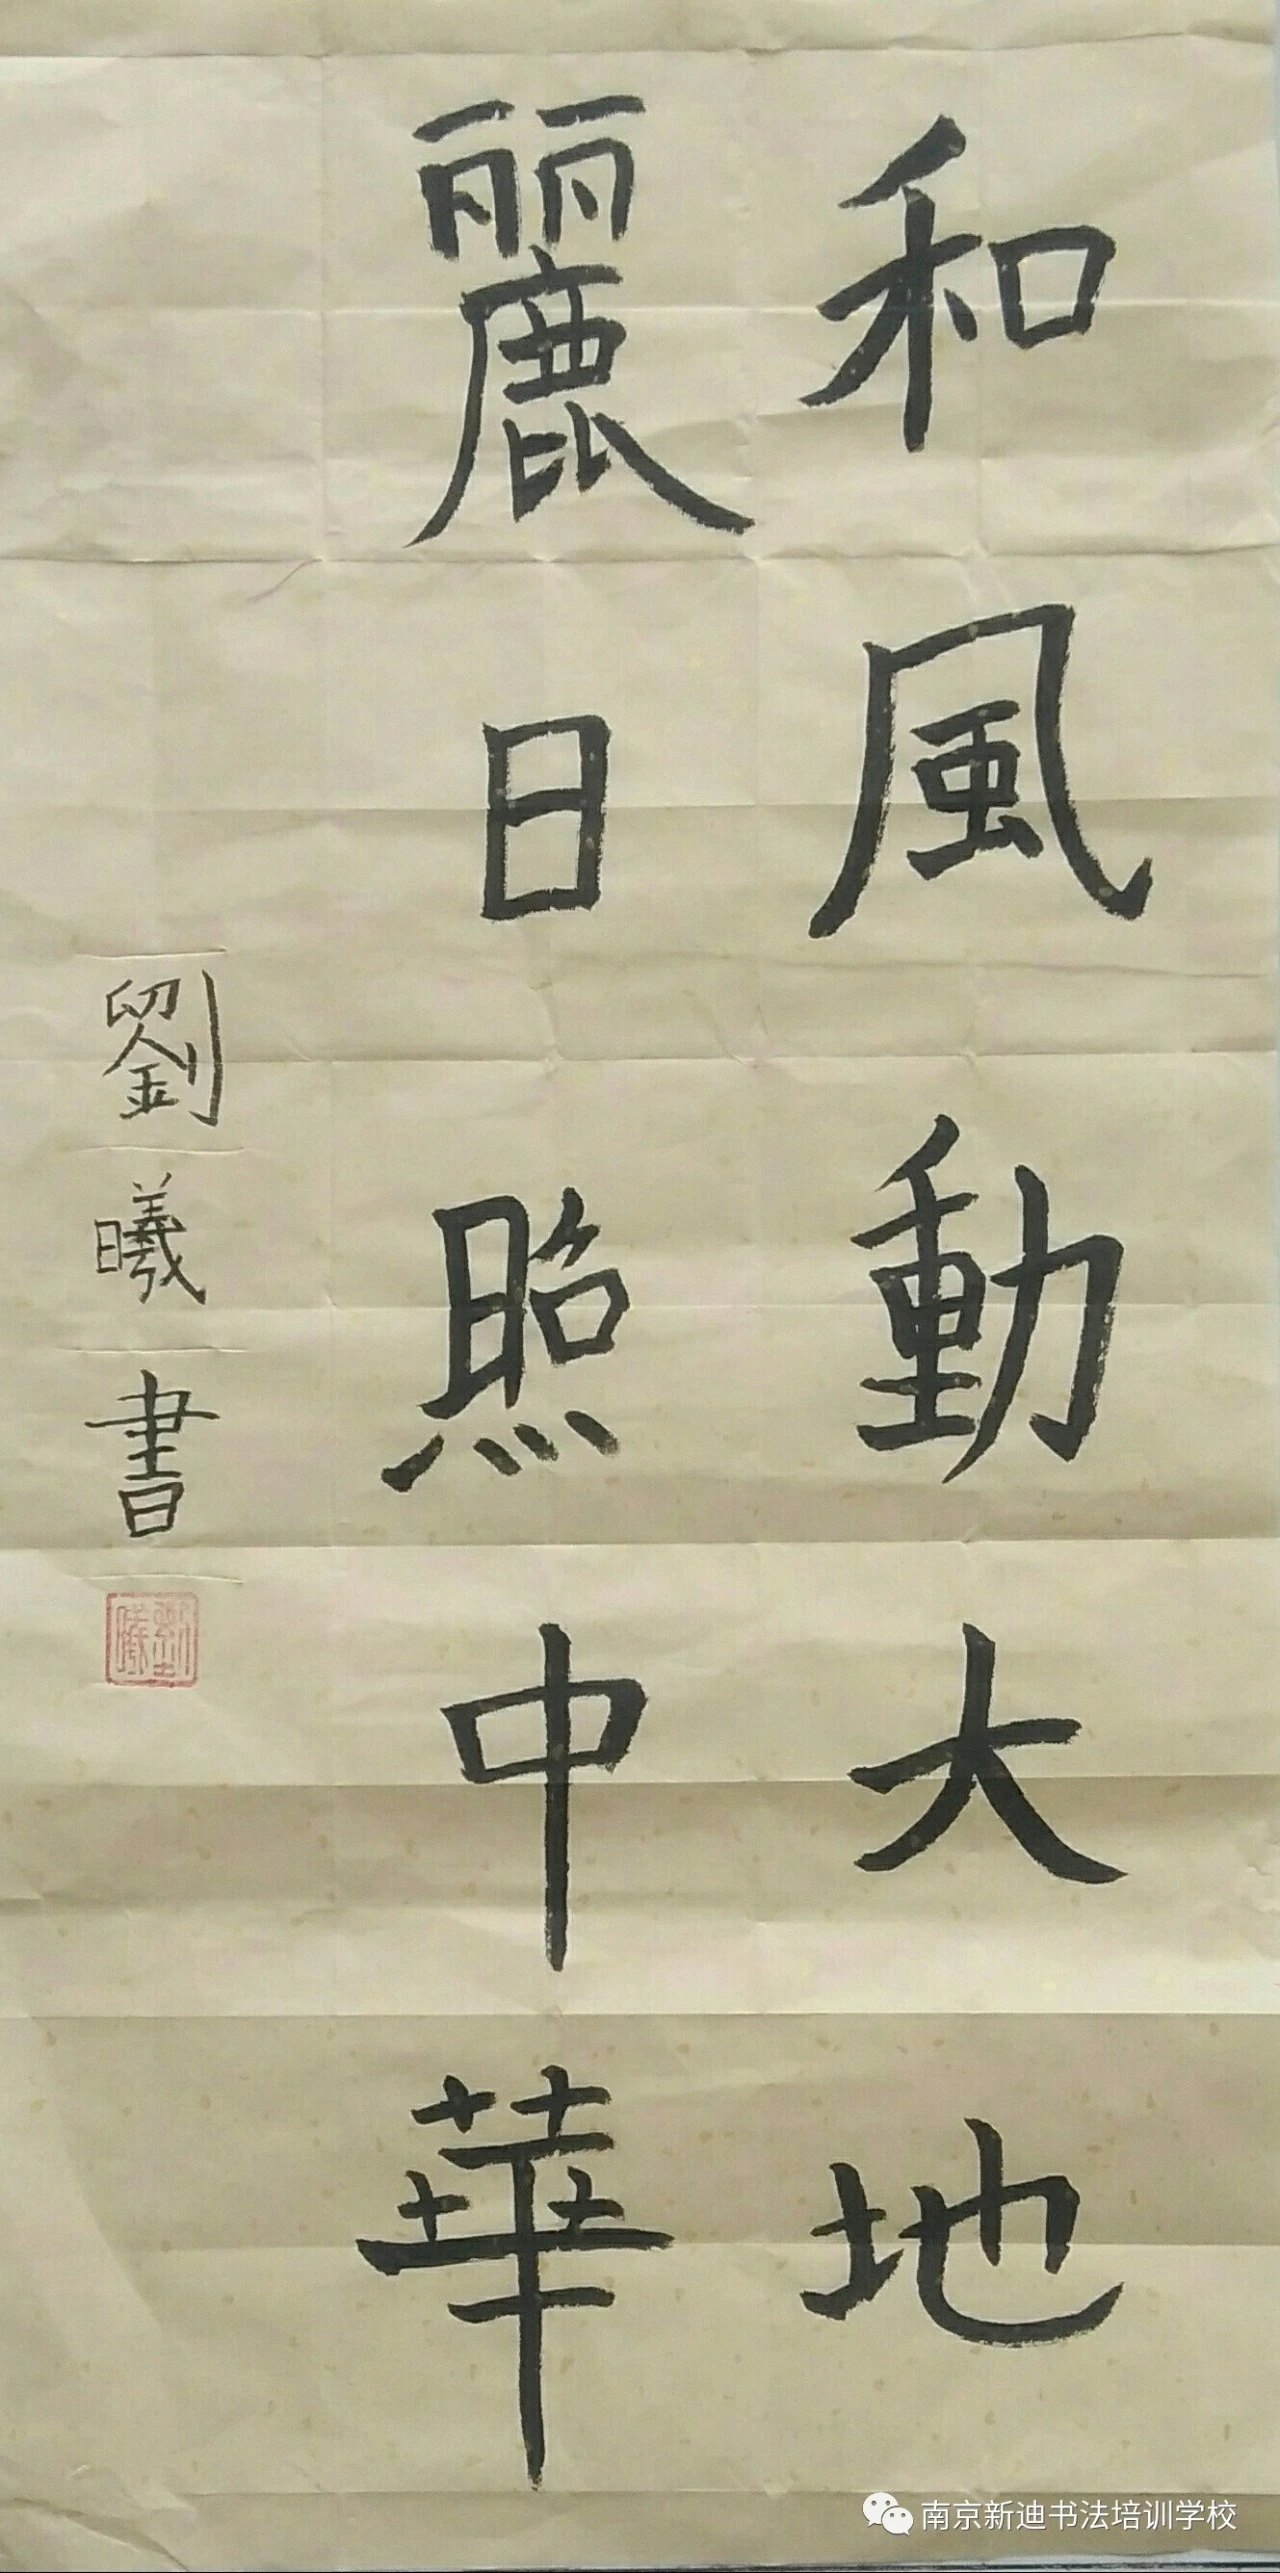 和風動大地
麗日照中華
劉曦書
劉曦
南京新迪书法培训学校